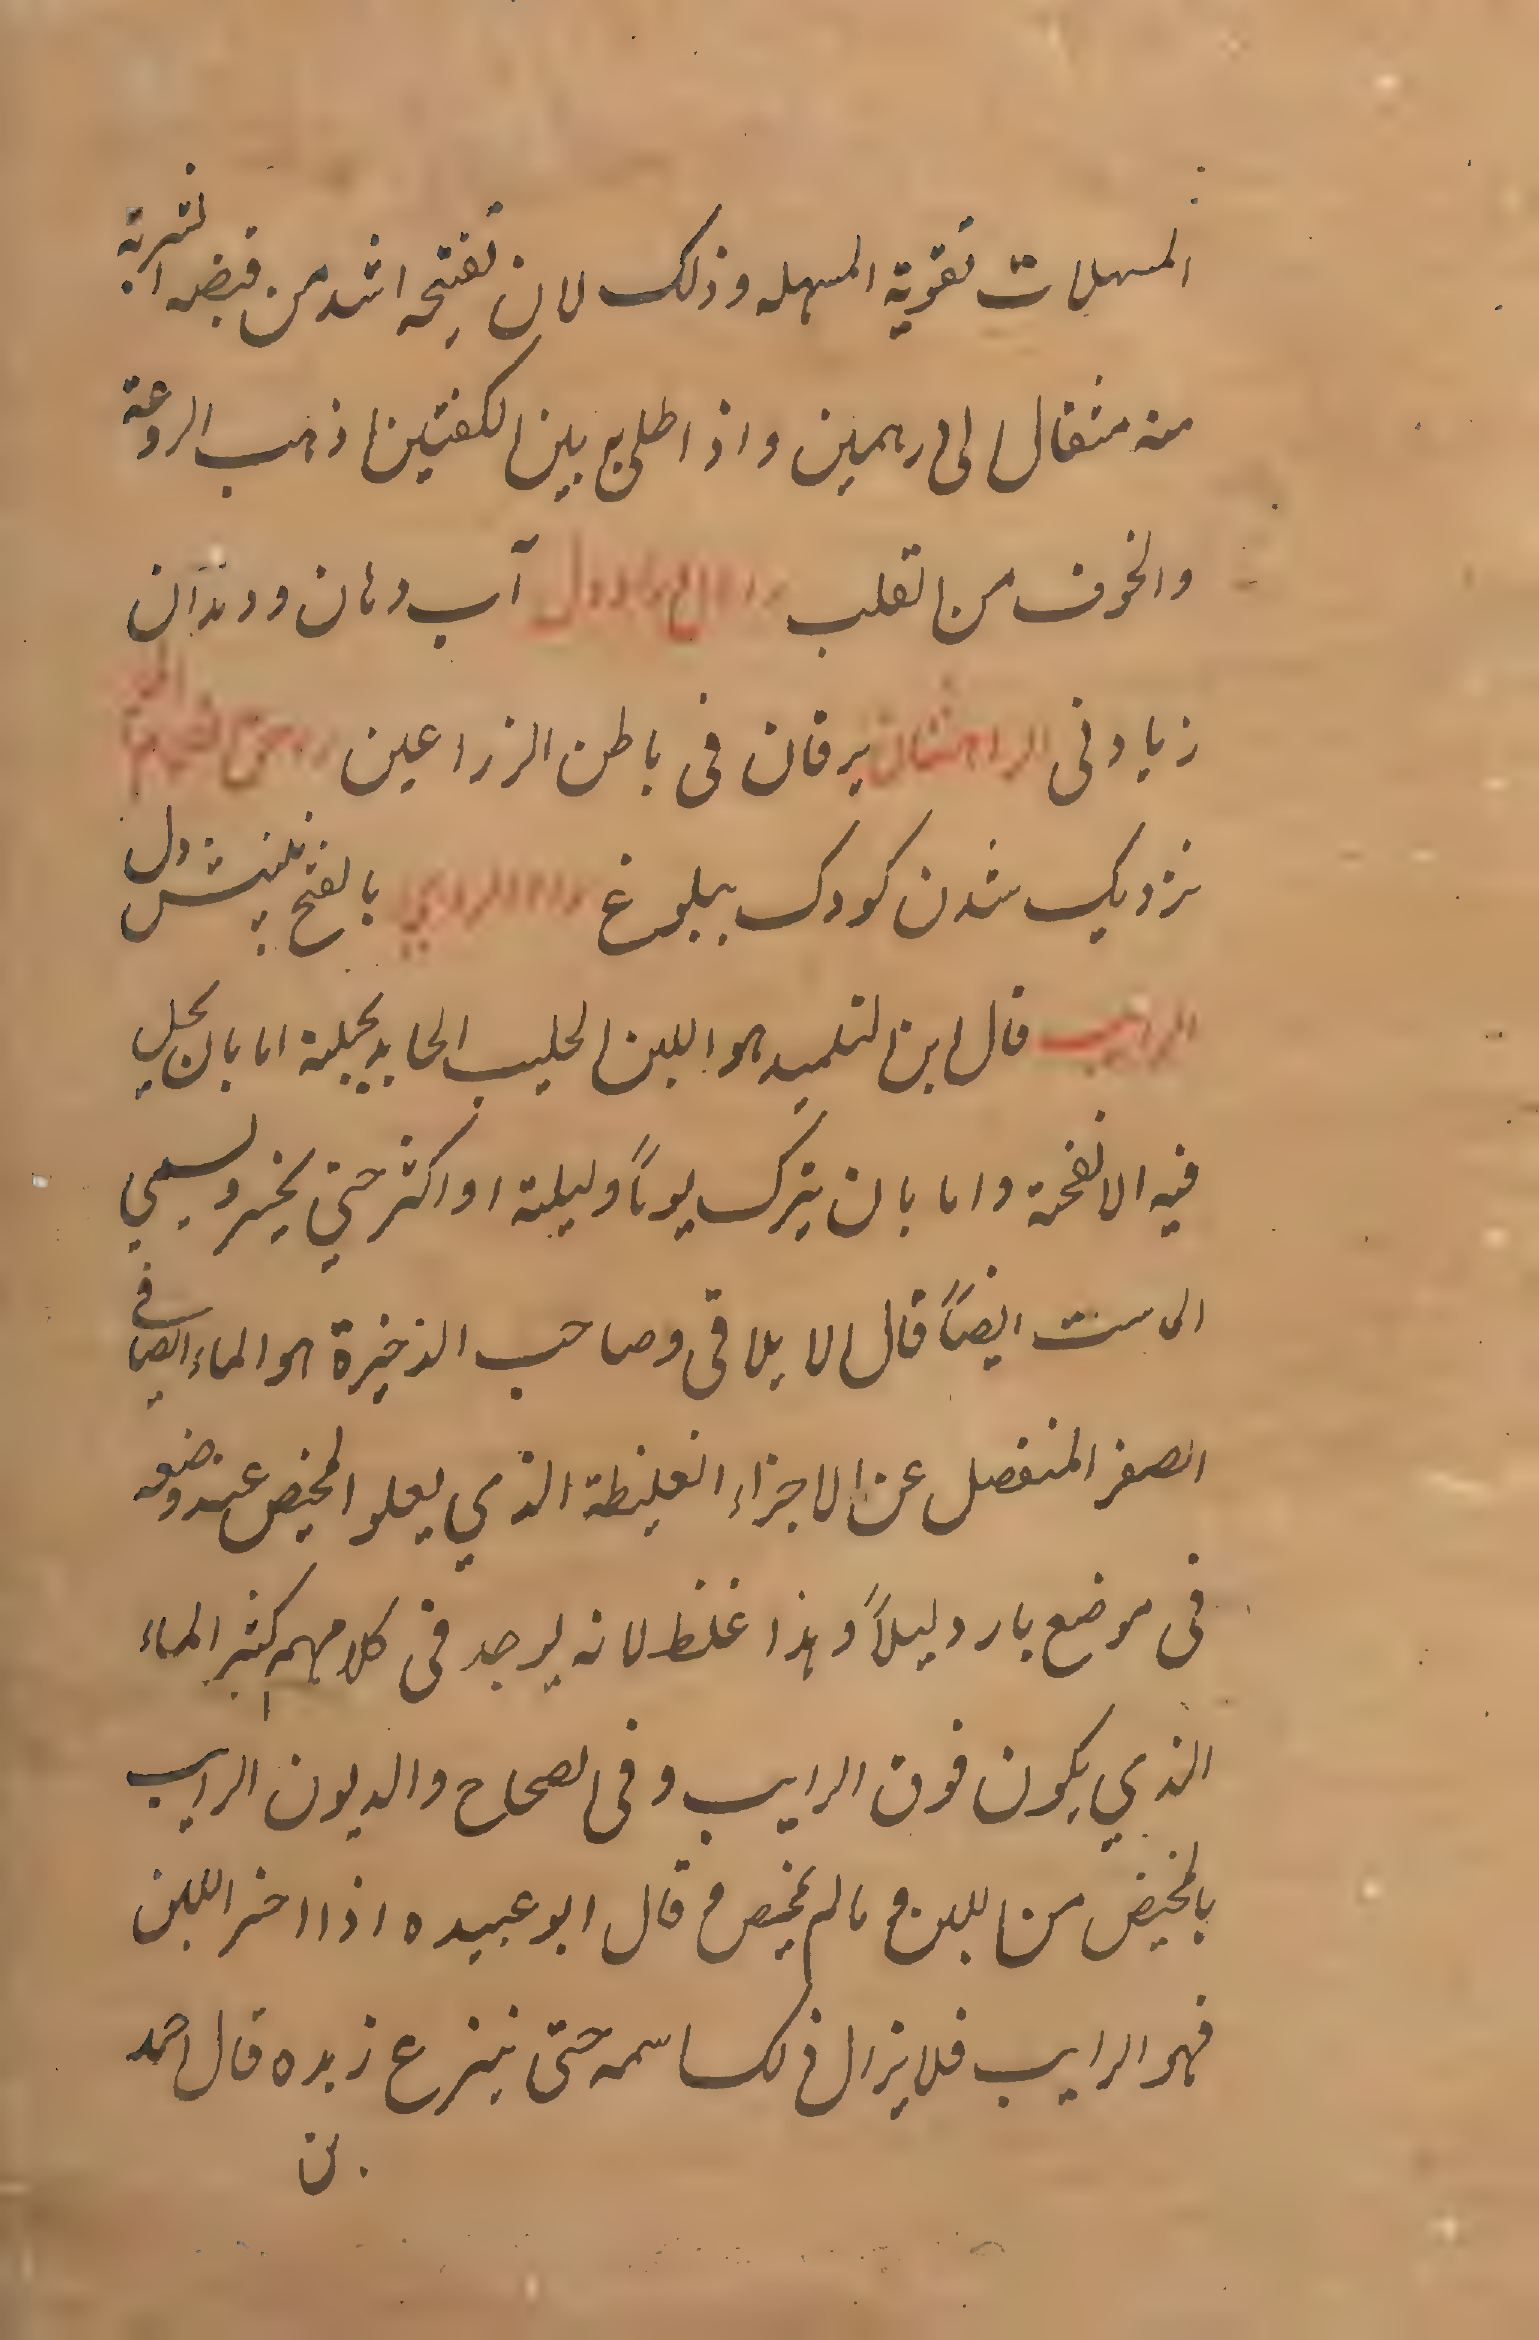 المسهلات تقوية المسهله وذلك لان تفتيحه اشد من قبضه الشربة
منه مثقال الى درهمين واذا طلي به بين الكفتين اذهب الروعة
والخوف من القلب آب دهان ودندان
زيادتى الراهشان عرقان فى باطن الزراعين
نزديك شدن كودك ببلوغ بالفتح تپش دل
الرايب قال ابن التلميذ هو اللبن الحليب الحا بد بحيلة اما بان يحل
فيه الانفحة واما بان يترك يوماً وليلة او اكثر حتى يخثر ويسمي
الماست ايضاً قال الايلاقى وصاحب الذخيرة هو الماء الصافى
الصفر المنفصل عن الاجزاء الغليظة الذي يعلو المخيض عند وضعه
فى موضع بارد ليلاً وهذا غلط لانه يوجد فى كلامهم كثير الماء
الذي يكون فوق الرايب وفى الصحاح والديون الرايب
بالمخيض من اللبن وما لم يمخض وقال ابو عبيده اذا اخثر اللبن
فهو الرايب فلا يزال ذلك اسمه حتى ينزع زبده قال احمد
بن